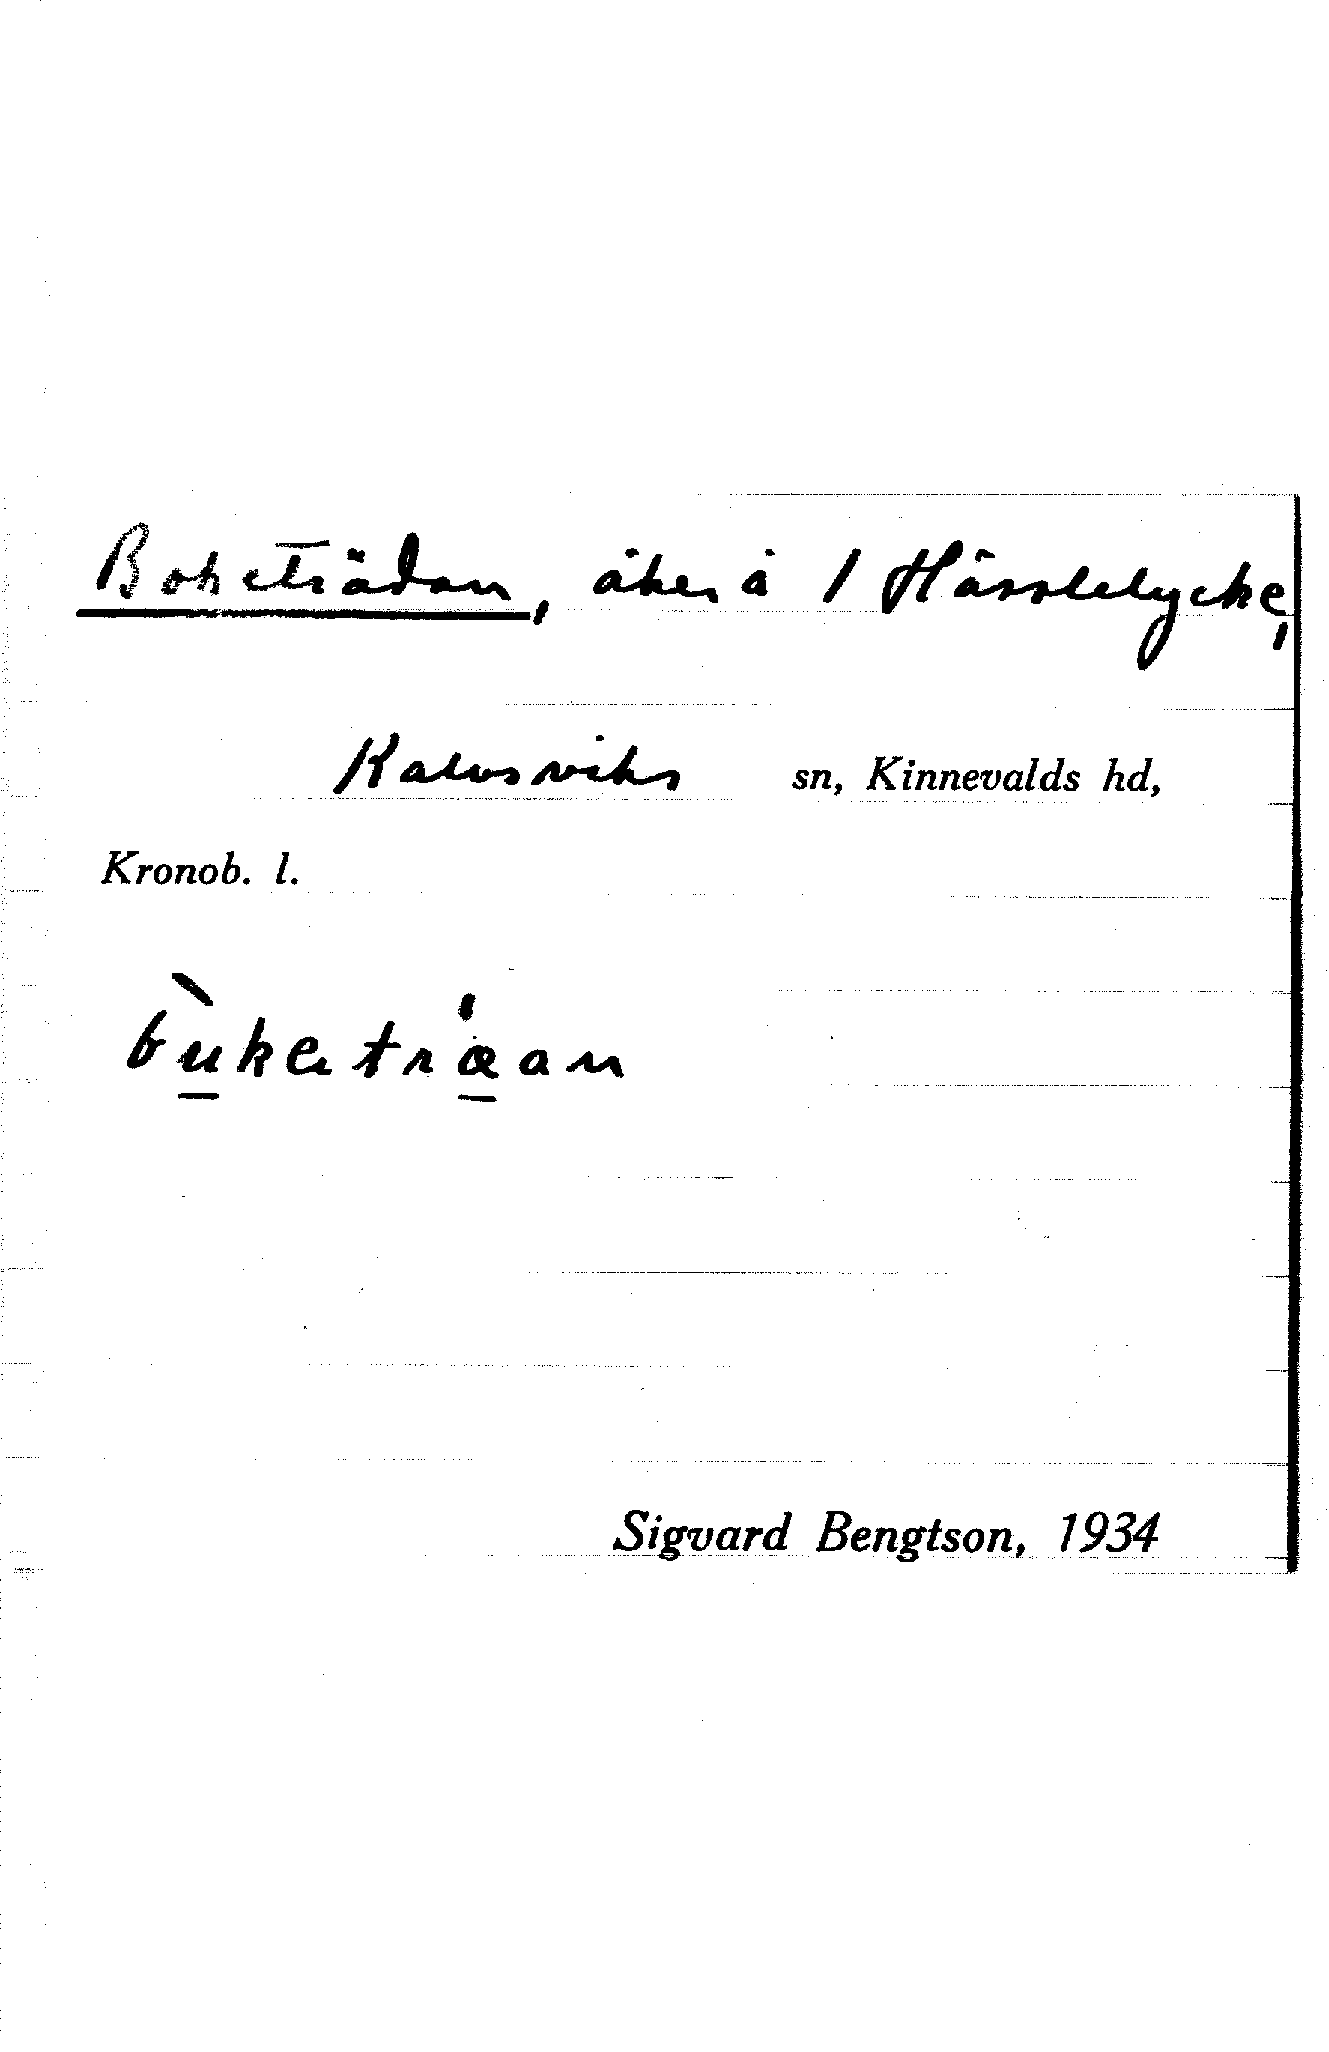 Boketrädan, åker å 1 Hässlelycke,
Kalvsviks sn, Kinnevalds hd,
Kronob. l.
bùketræ̍an
Sigvard Bengtson, 1934